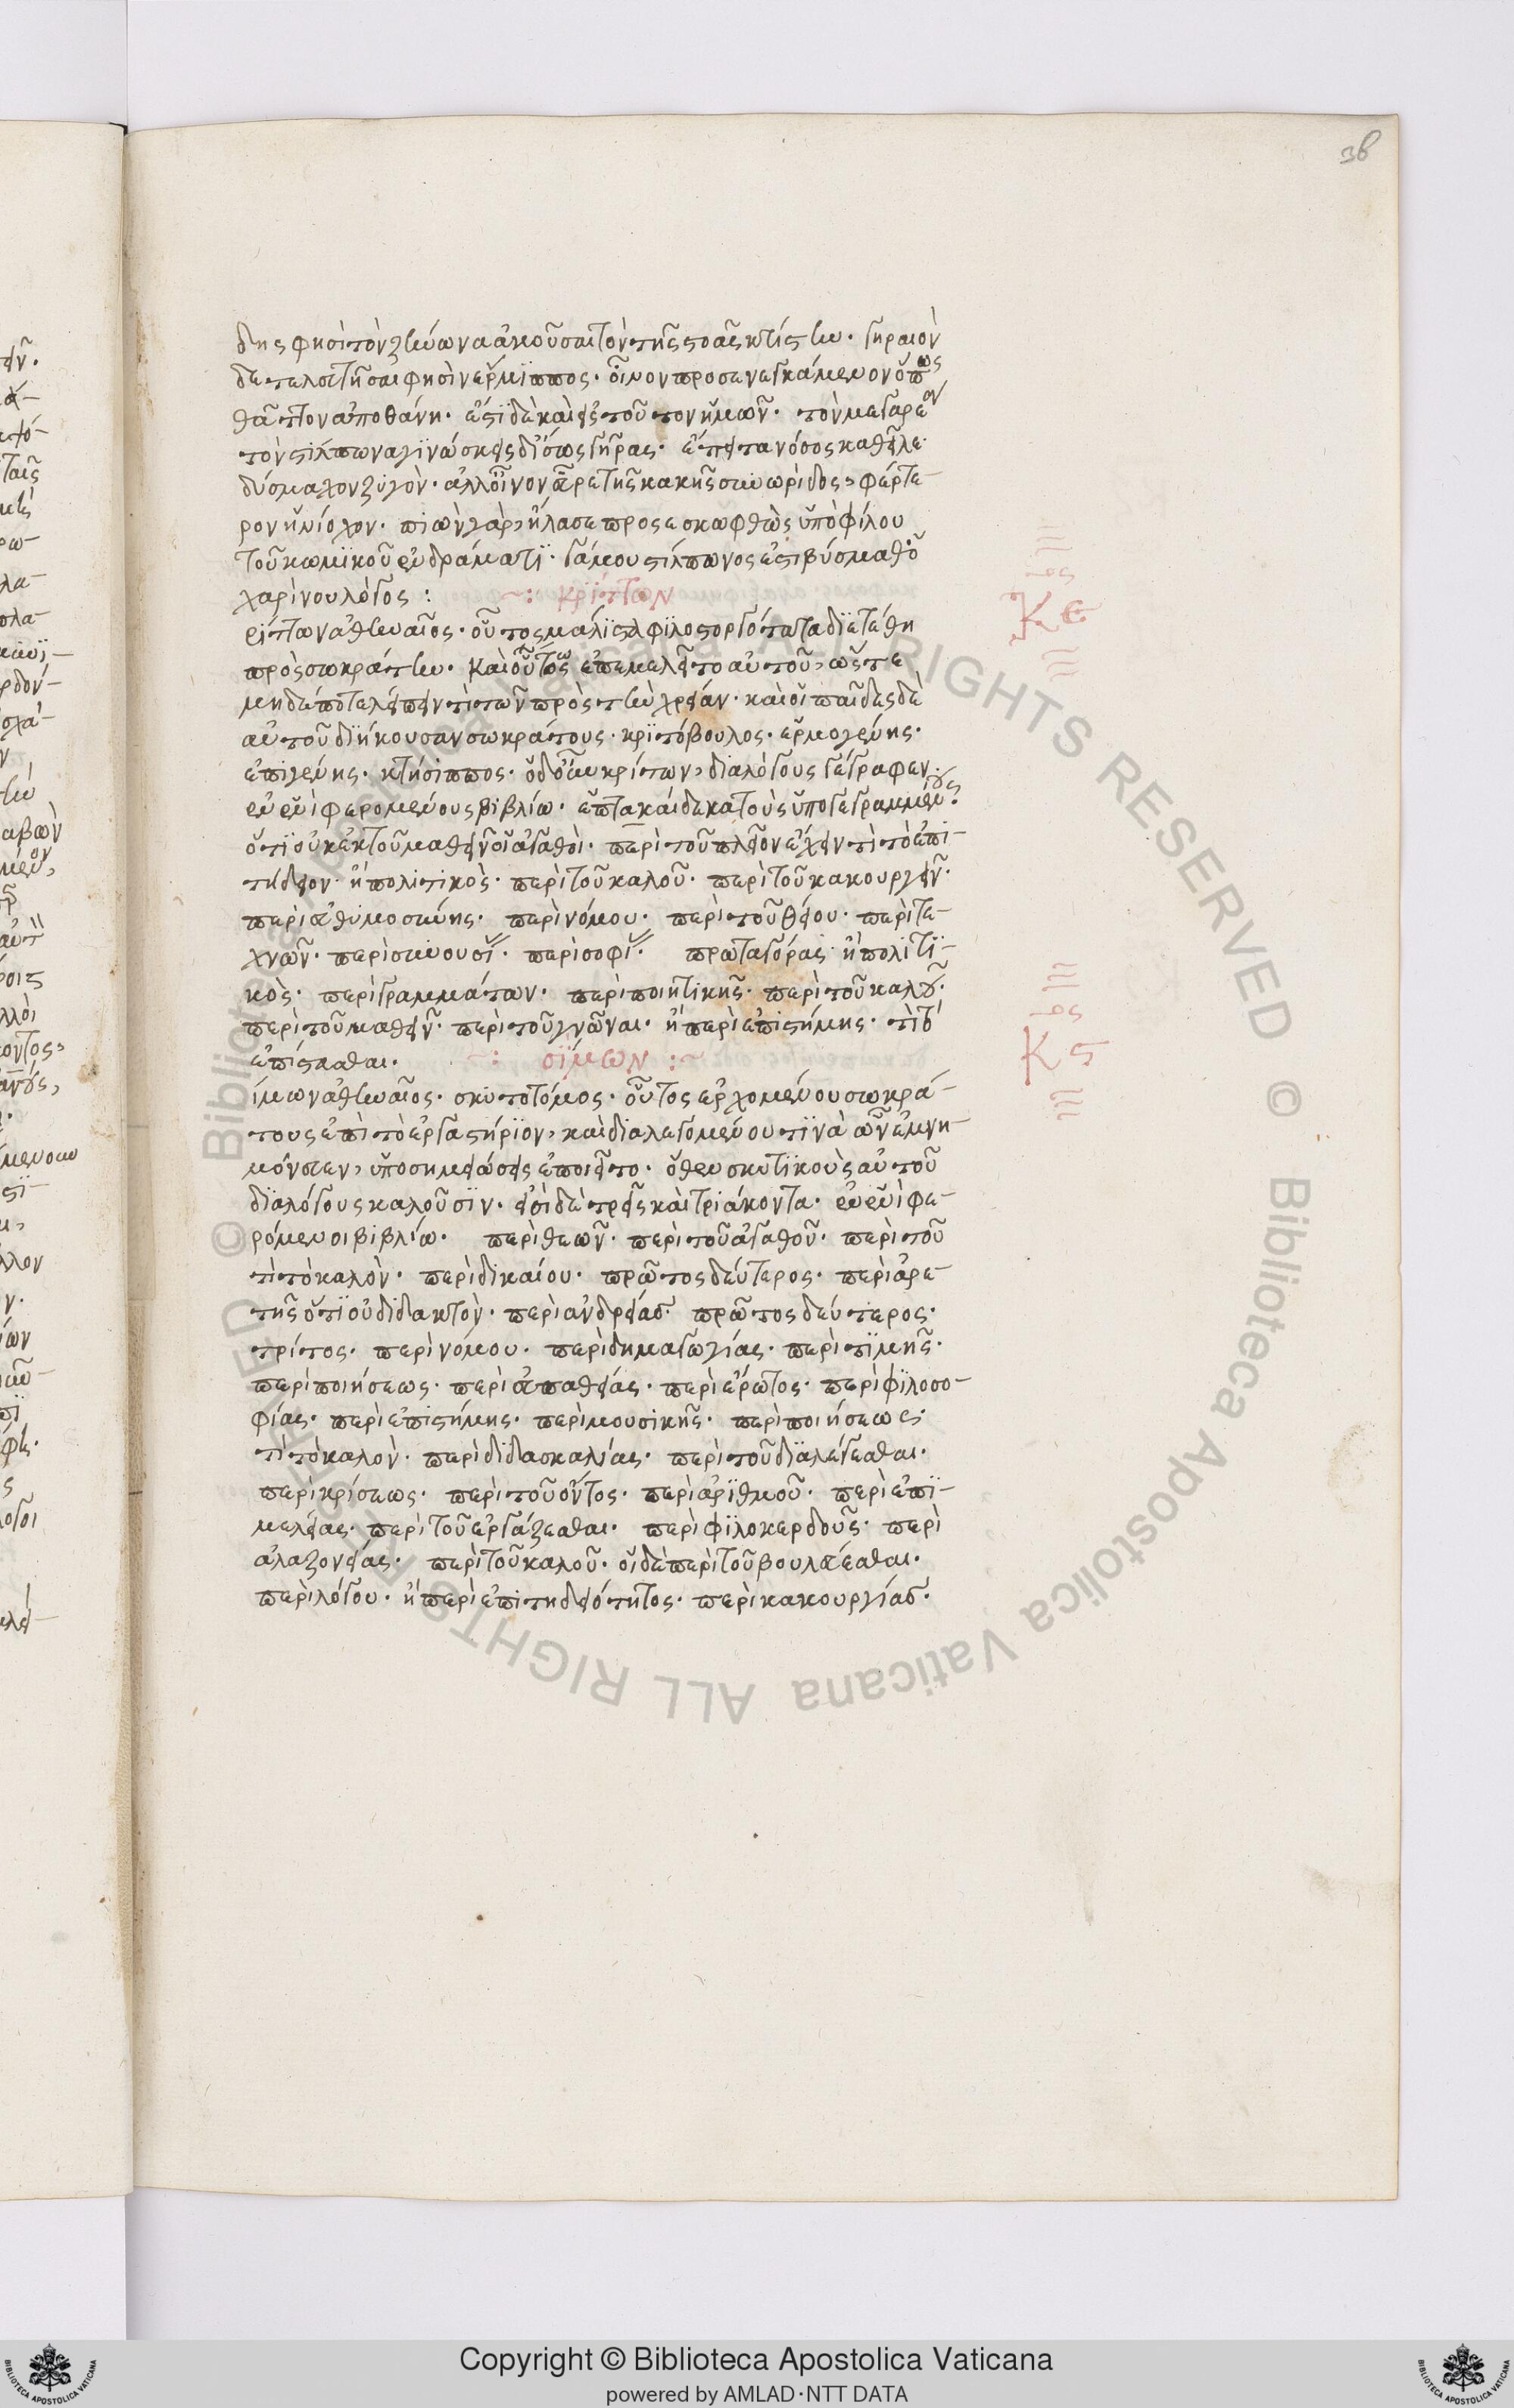 38
δης φησὶ τὸν ζήνωνα ἀκοῦσαι τὸν τῆς στοᾶς κτίστην. γηραιὸν
δὲ τελευτῆσαί φησιν ἕρμιππος. οἶνον προσενεγκάμενον ὅπως
θᾶττον ἀποθάνῃ. ἔστι δὲ καὶ εἰς τοῦτον ἡμῶν. τὸν μεγαρέα
τὸν στίλπωνα γινώσκεις δ' ἴσως γῆρας. ἔπειτα νόσος καθεῖλε
δύσμαχον ζυγόν. ἀλλ' οἶνον εὗρε τῆς κακῆς συνωρίδος, φέρτε-
ρον ἡνίοχον. πιὼν γὰρ, ἤλασε προσεσκώφθη ὑπὸ φίλου
τοῦ κωμικοῦ ἐν δράματι γάμου στίλπωνος ἐστὶ βύσμαθ' ὁ
χαρίνου λόγος :
~: κρίτων
Κε
ρίτων ἀθηναῖος. οὗτος μάλιστα φιλοστοργότατα διετέθη
πρὸς σωκράτην. καὶ οὕτως ἐπεμελεῖτο αὐτοῦ, ὥστε
μηδέποτε λείπειν τι τῶν πρὸς τὴν χρείαν. καὶ οἱ παῖδες δὲ
αὐτοῦ διήκουσαν σωκράτους. κριτόβουλος. ἑρμογένης.
ἐπιγένης. κτήσιππος. ὁ δ' οὖν κρίτων, διαλόγους γέγραφεν.
ἐν ἑνὶ φερομένους βιβλίω. ἑπτακαίδεκα τοὺς ὑπογεγραμμένους.
ὅτι οὐκ ἐκ τοῦ μαθεῖν οἱ ἀγαθοί. περὶ τοῦ πλεῖον ἔχειν τί τὸ ἐπι-
τήδειον ἢ πολιτικὸς. περὶ τοῦ καλοῦ. περὶ τοῦ κακουργεῖν.
περὶ εὐθυμοσύνης. περὶ νόμου. περὶ τοῦ θείου. περὶ τε-
χνῶν. περὶ συνουσί. περὶ σοφί. πρωταγόρας ἢ πολιτι-
κὸς. περὶ γραμμάτων. περὶ ποιητικῆς. περὶ τοῦ καλοῦ.
περὶ τοῦ μαθεῖν. περὶ τοῦ γνῶναι. ἢ περὶ ἐπιστήμης. τί τὸ
ἐπίστασθαι.
~: σίμων :~
Κς
ίμων ἀθηναῖος. σκυτοτόμος. οὗτος ἐρχομένου σωκρά-
τους ἐπὶ τὸ ἐργαστήριον, καὶ διαλεγόμενου τινὰ ὧν ἐμνη-
μόνευεν, ὑποσημειώσεις ἐποιεῖτο. ὅθεν σκυτικοὺς αὐτοῦ
διαλόγους καλοῦσιν. εἰσὶ δὲ τρεῖς καὶ τριάκοντα. ἐν ἑνὶ φε-
ρόμενοι βιβλίω. περὶ θεῶν. περὶ τοῦ ἀγαθοῦ. περὶ τοῦ
τί τὸ καλὸν. περὶ δικαίου. πρῶτος δεύτερος. περὶ ἀρε-
τῆς ὅτι οὐ διδακτὸν. περὶ ἀνδρείας πρῶτος δεύτερος.
τρίτος. περὶ νόμου. περὶ δημαγωγίας. περὶ τιμῆς.
περὶ ποιήσεως. περὶ εὐπαθείας. περὶ ἔρωτος. περὶ φιλοσο-
φίας. περὶ ἐπιστήμης. περὶ μουσικῆς. περὶ ποιήσεως.
τί τὸ καλὸν. περὶ διδασκαλίας. περὶ τοῦ διαλέγεσθαι.
περὶ κρίσεως. περὶ τοῦ ὄντος. περὶ ἀριθμοῦ. περὶ ἐπι-
μελείας. περὶ τοῦ ἐργάζεσθαι. περὶ φιλοκερδοῦς. περὶ
ἀλαζονείας. περὶ τοῦ καλοῦ. οἱ δὲ περὶ τοῦ βουλεύεσθαι.
περὶ λόγου. ἢ περὶ ἐπιτηδειότητος. περὶ κακουργίας.
© Biblioteca Apostolica Vaticana ALL RIGHTS RESERVED
Copyright © Biblioteca Apostolica Vaticana
powered by AMLAD·NTT DATA